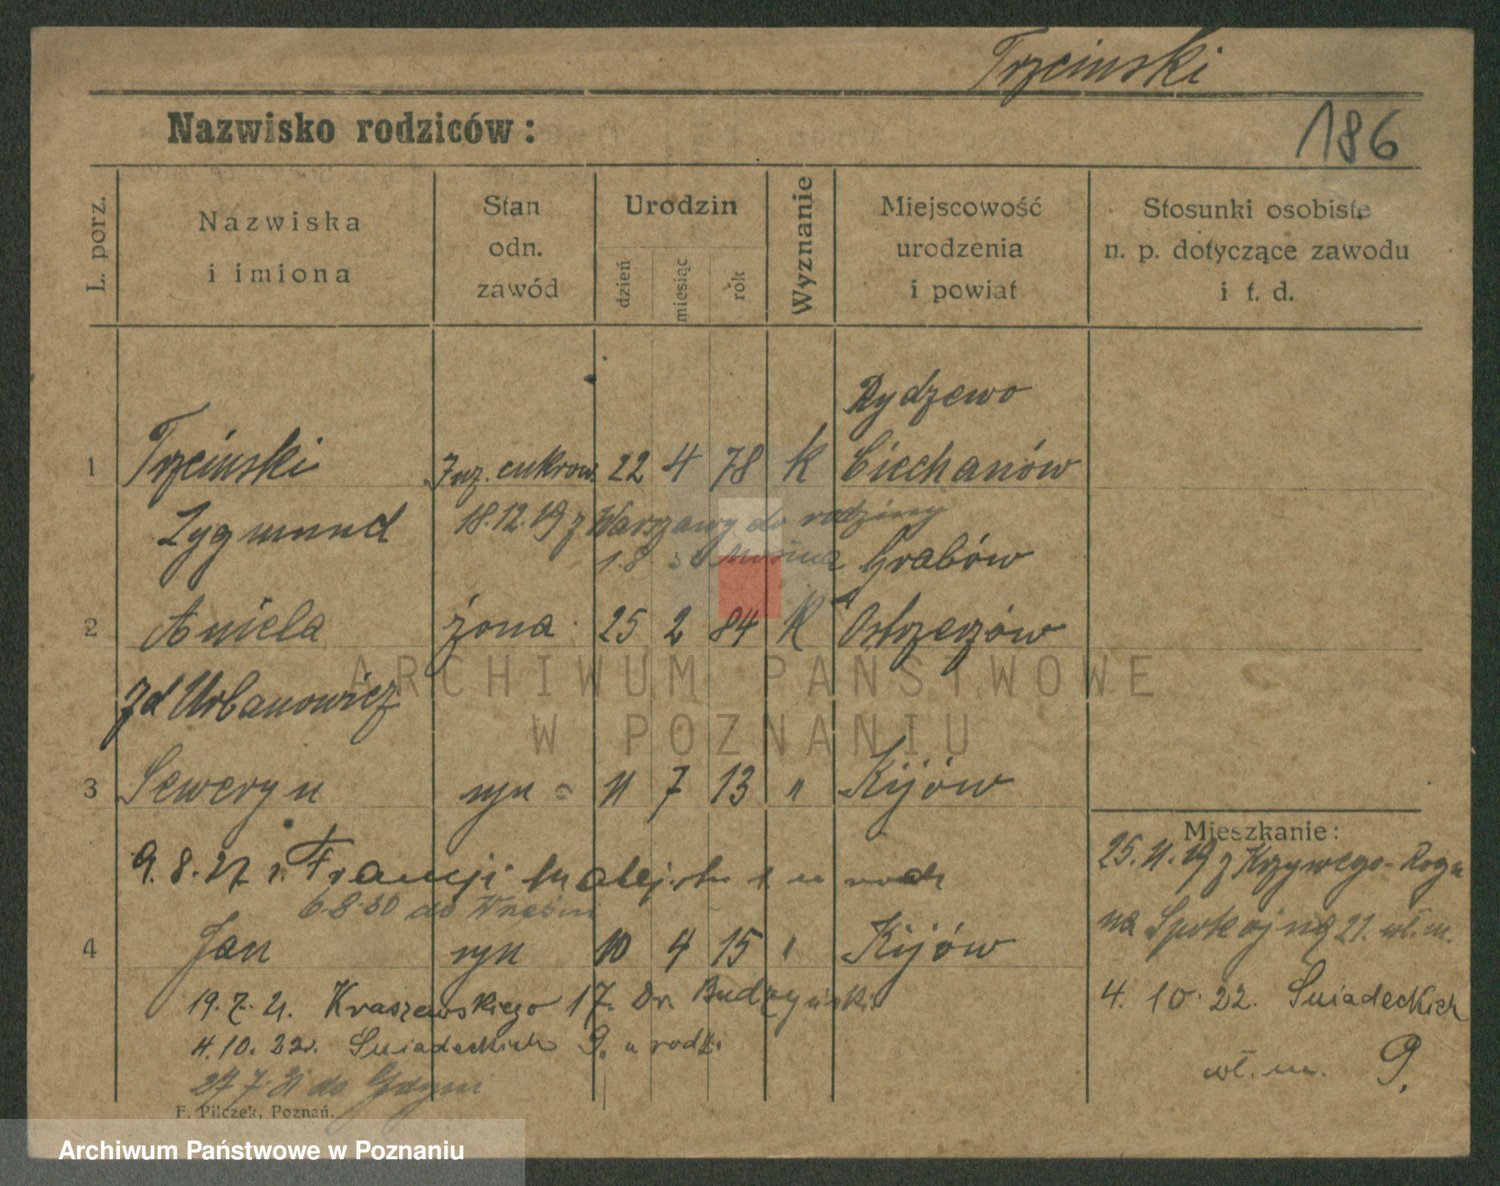 Trzcinski
186
Nazwisko rodziców:
L. porz.
Nazwiska
i imiona
Stan
odn.
zawód
Urodzin
dzień
miesiąc
rok
Wyznanie
Miejscowość
urodzenia
i powiat
Stosunki osobiste
n. p. dotyczące zawodu
i t. d.
Rydzewo
1 Trzcinski Inż. cukrow. 22 4 78 k Ciechanów
Zygmund 18.12.19 z Warszawy do rodziny
1.8 Grabów
2 Aniela żona 25 2 84 k Ostrzeszów
zd Urbanowicz
ARCHIWUM PAŃSTWOWE
W POZNANIU
3 Seweryn syn 11 7 13 " Kijów
9.8.27 z Francji Matejki
6.8.30 do
4 Jan syn 10 4 15 " Kijów
19.7.21. Kraszewskiego 17. Dr. Budzyński
4.10.22. Śniadeckich 9. u rodz.
27 7 31 do Gdyni
Mieszkanie:
25.11.19 z Krzywego-Rogu
na Spokojną 21. wł. m.
4. 10. 22. Śniadeckich
wł. m. 9.
F. Pilczek, Poznań.
Archiwum Państwowe w Poznaniu